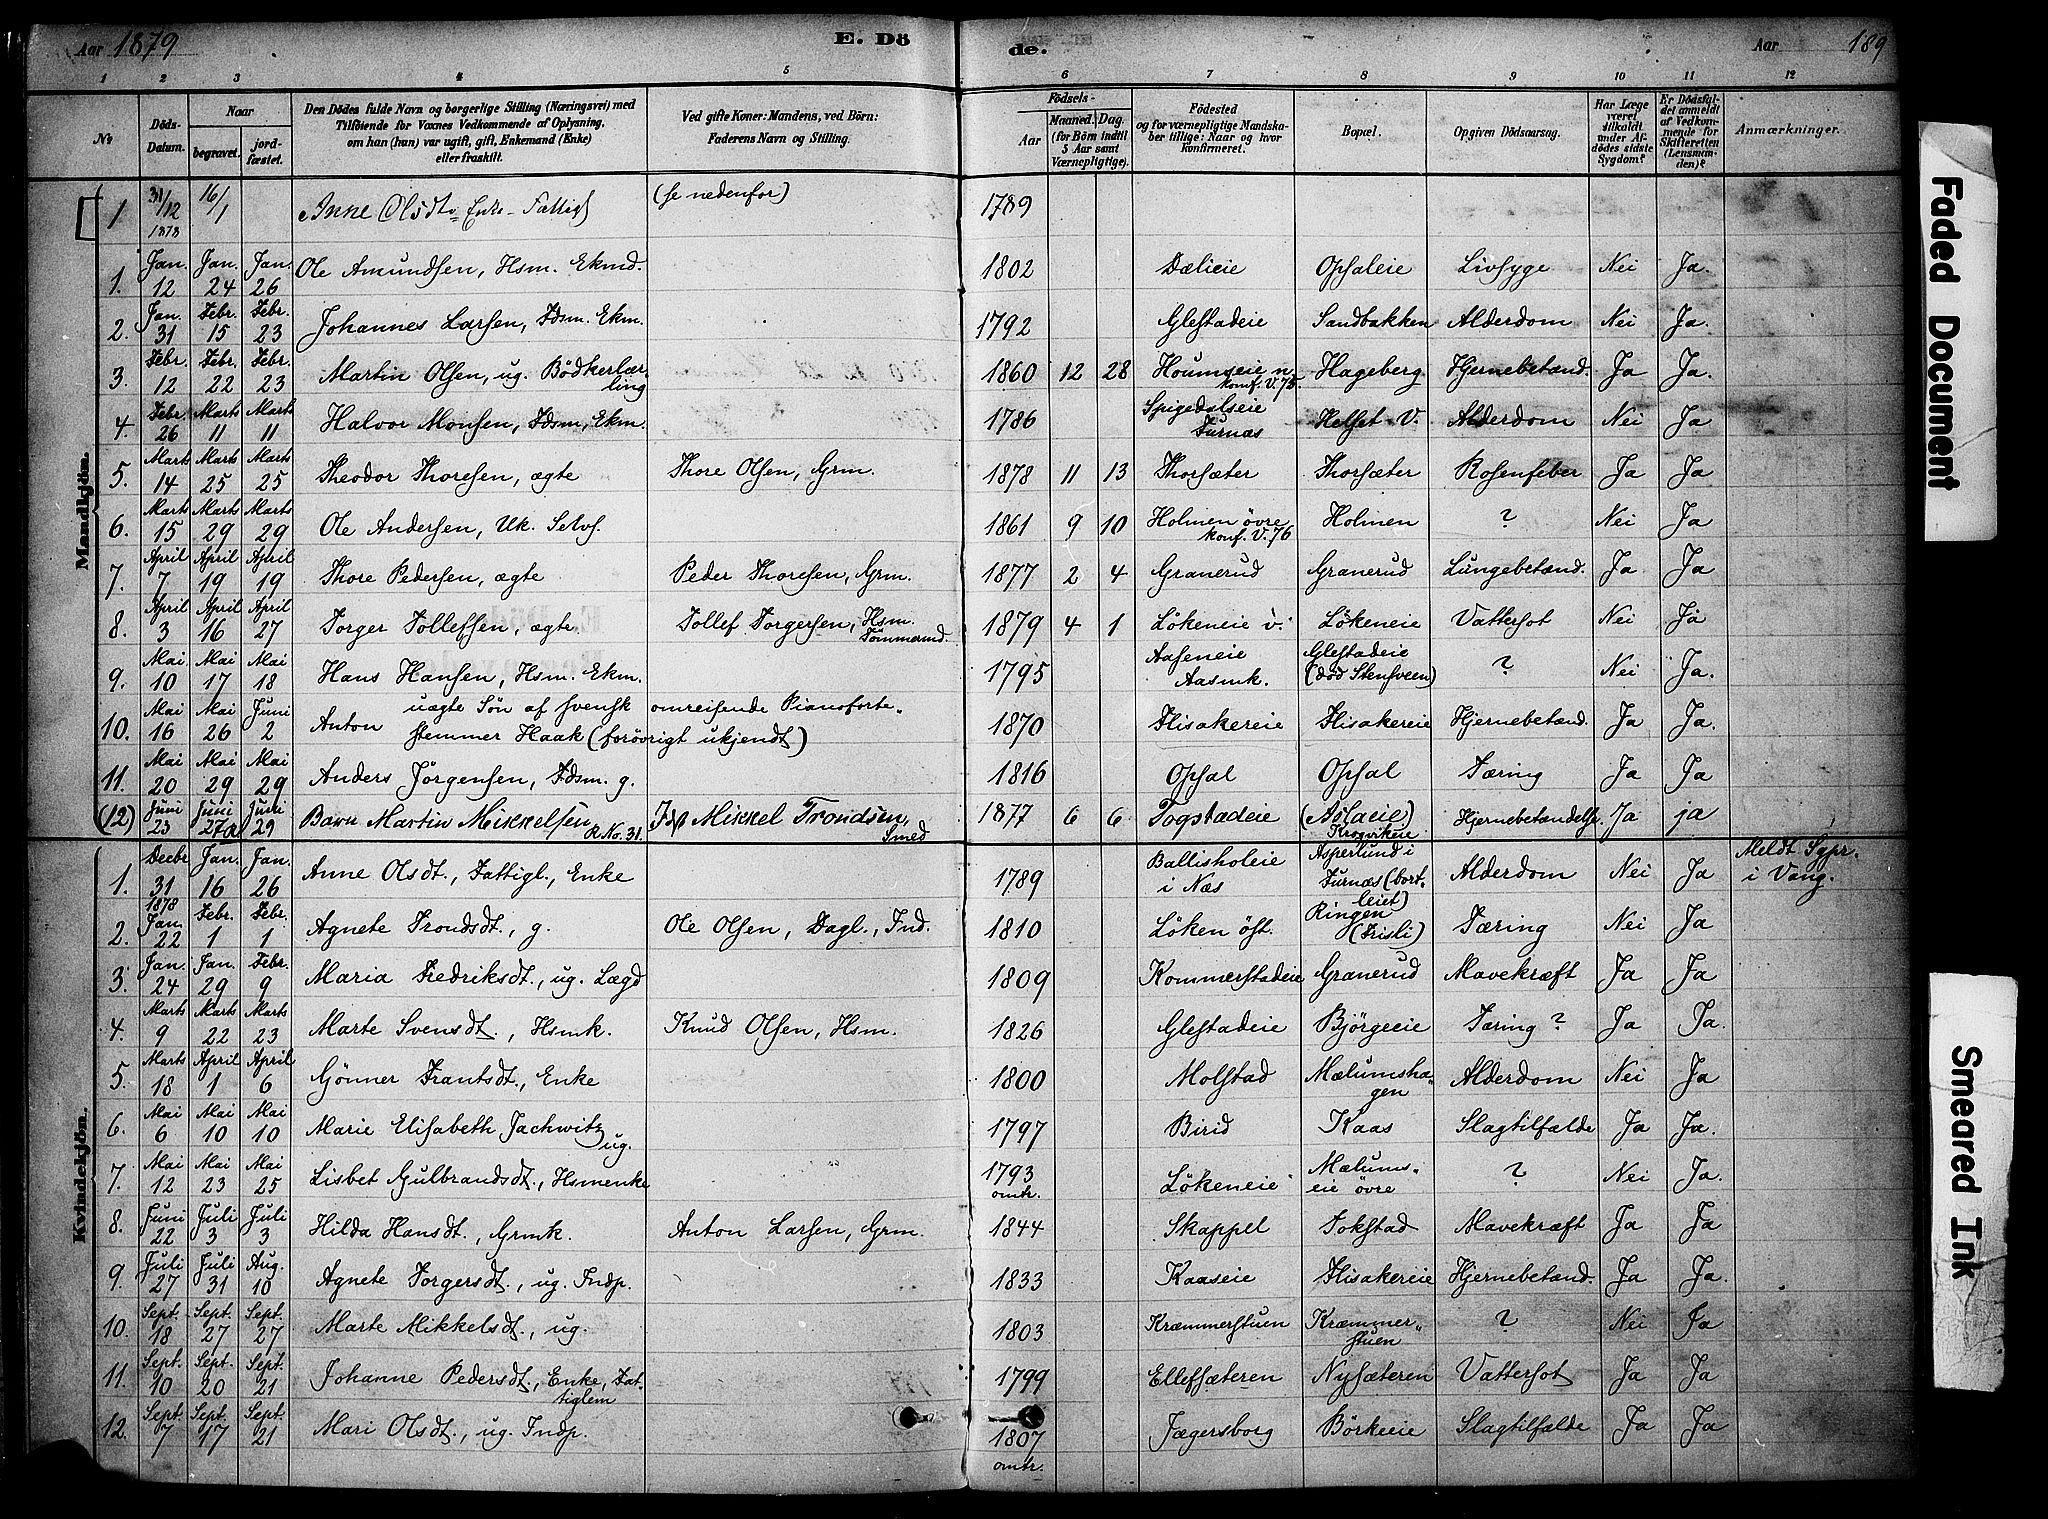 Aar 1879 E. Dö de. Aar 189
1 2 3 4 5 6 7 8 9 10 11 12
No Döds-Datum. Naar begravet. jordfæstet. Den Dödes fulde Navn og borgerlige Stilling (Næringsvei) med Tilföiende for Voxnes Vedkommende af Oplysning, om han (hun) var ugift, gift, Enkemand (Enke) eller fraskilt. Ved gifte Koner: Mandens, ved Börn: Faderens Navn og Stilling. Födsels- Aar Maaned. Dag. (for Börn indtil 5 Aar samt Værnepligtige). Födested og for værnepligtige Mandskaber tillige: Naar og hvor konfirmeret. Bopæl. Opgiven Dödsaarsag. Har Læge været tilkaldt under Afdödes sidste Sygdom? Er Dödsfaldet anmeldt af Vedkommende for Skifteretten (Lensmanden)? Anmærkninger.
Mandkjön.
1 31/12 1878 16/1 Anne Olsdtr Enke - Fattigl (se nedenfor) 1789
1. Jan. 12 Jan. 24 Jan. 26 Ole Amundsen, Hsm. Ekmd. 1802 Dælieie Opsaleie Livsyge Nei Ja.
2. Jan. 31 Febr. 15 Febr. 23 Johannes Larsen, Fdsm. Ekm. 1792 Glestadeie Sandbakken Alderdom Nei Ja.
3. Febr. 12 Febr. 22 Febr. 23 Martin Olsen, ug. Bödkerlærling 1860 12 28 Houmseie n. konf. V. 75 Hageberg Hjernebetænd. Ja Ja
4. Febr. 26 Marts 11 Marts 11 Halvor Monsen, Fdsm, Ekm. 1786 Spigedalseie Furnæs Helset V. Alderdom Nei Ja
5. Marts 14 Marts 25 Marts 25 Theodor Thoresen, ægte Thore Olsen, Grm. 1878 11 13 Thorsæter Thorsæter Rosenfeber Ja Ja
6. Marts 15 Marts 29 Marts 29 Ole Andersen, Uk. Selvs. 1861 9 10 Holmen övre konf. V. 76 Holmen ? Nei Ja
7. April 7 April 19 April 19 Thore Pedersen, ægte Peder Thoresen, Grm. 1877 2 4 Granerud Granerud Lungebetænd. Ja Ja
8. April 3 April 16 April 27 Torger Tollefsen, ægte Tollef Torgersen, Hsm. Tömmermd 1879 4 1 Lökeneie v. Lökeneie Vattersot Nei Ja
9. Mai 10 Mai 17 Mai 18 Hans Hansen, Hsm. Ekm. 1795 Aaseneie Aasmk. Glestadeie (död Stensveen) ? Nei Ja.
10. Mai 16 Mai 26 Juni 2 Anton uægte Sön af svensk omreisende Pianoforte-
stemmer Haak (forövrigt ukjendt) 1870 Flisakereie Flisakereie Hjernebetænd. Ja Ja.
11. Mai 20 Mai 29 Mai 29 Anders Jörgensen, Fdsm. g. 1816 Opsal Opsal Tæring Ja Ja
(12) Juni 23 Juni 27 Juni 29 Barn Martin Mikkelsen R. No. 31. Mikkel Trondsen, Smed 1877 6 6 Togstadeie Krogvikeie Hjernebetændelse. Ja ja
Kvindekjön.
1. Decbr 31 1878 Jan. 16 Jan. 26 Anne Olsdt., Fattigl., Enke 1789 Ballisholeie i Næs Asperlund i Furnæs (bortleiet) Alderdom Nei Ja Meldt Sypr. i Vang.
2. Jan. 22 Febr. 1 Febr. 1 Agnete Trondsdt., g. Ole Olsen, Dagl., Ind. 1810 Löken öst. Ringen (Frisli) Tæring Nei Ja
3. Jan. 24 Jan. 29 Febr. 9 Maria Fredriksdt., ug. Lægd 1809 Kommerstadeie Granerud Mavekræft Ja Ja
4. Marts 9 Marts 22 Marts 23 Marte Svensdt., Hsmk. Knud Olsen, Hsm. 1826 Glestadeie Björgeeie Tæring ? Ja Ja.
5. Marts 18 April 1 April 6 Gönner Frantsdt., Enke 1800 Molstad Mælumshagen Alderdom Nei Ja
6. Mai 6 Mai 10 Mai 10 Marie Elisabeth Jachwitz ug. 1797 Birid Kaas Slagtilfælde Ja Ja.
7. Mai 12 Mai 23 Mai 25 Lisbet Gulbrandsdt., Hsmenke 1793 omtr. Lökeneie Mælumseie övre ? Nei Ja.
8. Juni 22 Juli 3 Juli 3 Hilda Hansdt., Grmk. Anton Larsen, Grm. 1844 Skappel Tokstad Mavekræft Ja Ja
9. Juli 27 Juli 31 Aug. 10 Agnete Torgersdt., ug. Indp. 1833 Kaaseie Flisakereie Hjernebetænd. Ja Ja.
10. Sept. 18 Sept. 27 Sept. 27 Marte Mikkelsdt., ug. 1803 Kræmmerstuen Kræmmerstuen ? Nei Ja
11. Sept. 10 Sept. 20 Sept. 21 Johanne Pedersdt., Enke, Fattiglem 1799 Ellefsæteren Nysæteren Vattersot Ja Ja
12. Sept. 7 Sept. 17 Sept. 21 Mari Olsdt., ug. Indp. 1807 omtr. Jægersborg Börkeeie Slagtilfælde Ja Ja
Faded Document
Smeared Ink